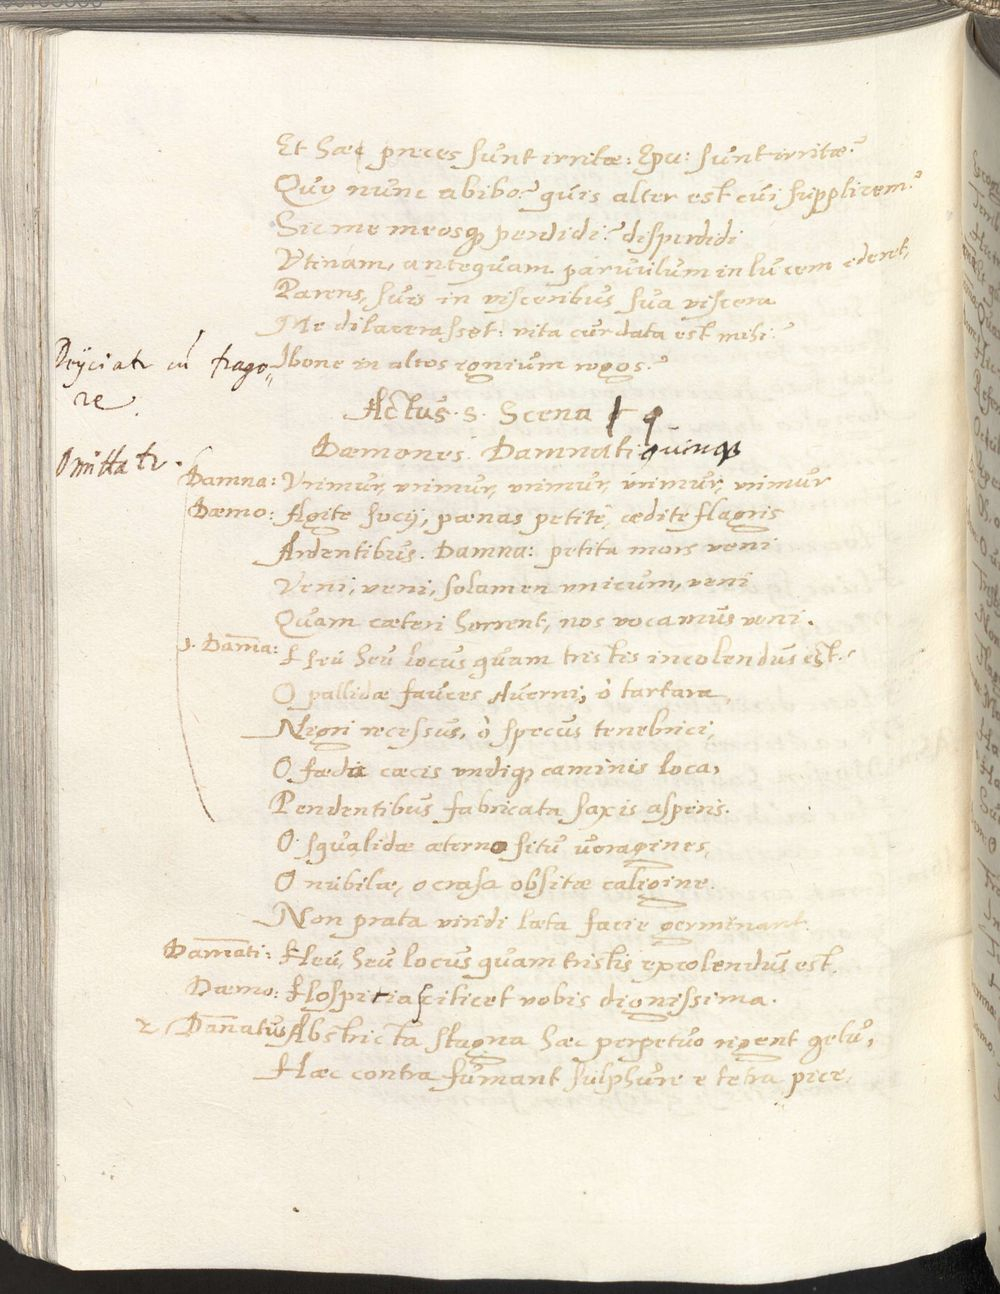 Et hæc preces sunt irritæ: Epu: sunt irritæ?
Quo nunc abibo? quis alter est cui supplicem?
Sic me meosq3 perdidi? disperdidi
Utinam, antequam parvulum in lucem ederet,
Parens, suis in visceribus sua viscera
Me dilacerasset: vita cur data est mihi?
Ibone in altos ignium rogos?
Deijciatr cū frago-
re.
Actus. 5. Scena
Omittatr.
Dæmones. Damnati quinq3
Damna: Urimur, urimur, urimur, urimur, urimur
Dæmo: Agite socij, pænas petite, cædite flagris
Ardentibus. Damna: petita mors veni
Veni, veni, solamen unicum, veni
Quam cæteri horrent, nos vocamus veni.
1. Dam̄a: Heu heu locus quam tristis incolendus est.
O pallidæ fauces Averni, ò tartara,
Nigri recessus, ò specus tenebrici,
O fæda cæcis undiq3 caminis loca,
Pendentibus fabricata saxis asperis.
O squalidæ æterno situ voragines,
O nubila, o crasa obsitæ caligine.
Non prata viridi læta facie germinant.
Dam̄ati: Heu, heu locus quam tristis excolendus est.
Dæmo: Hospitia scilicet vobis dignissima.
2 Dan̄atus Abstricta stagna hæc perpetuo rigent gelu,
Hæc contra fumant sulphure e tetra pice.